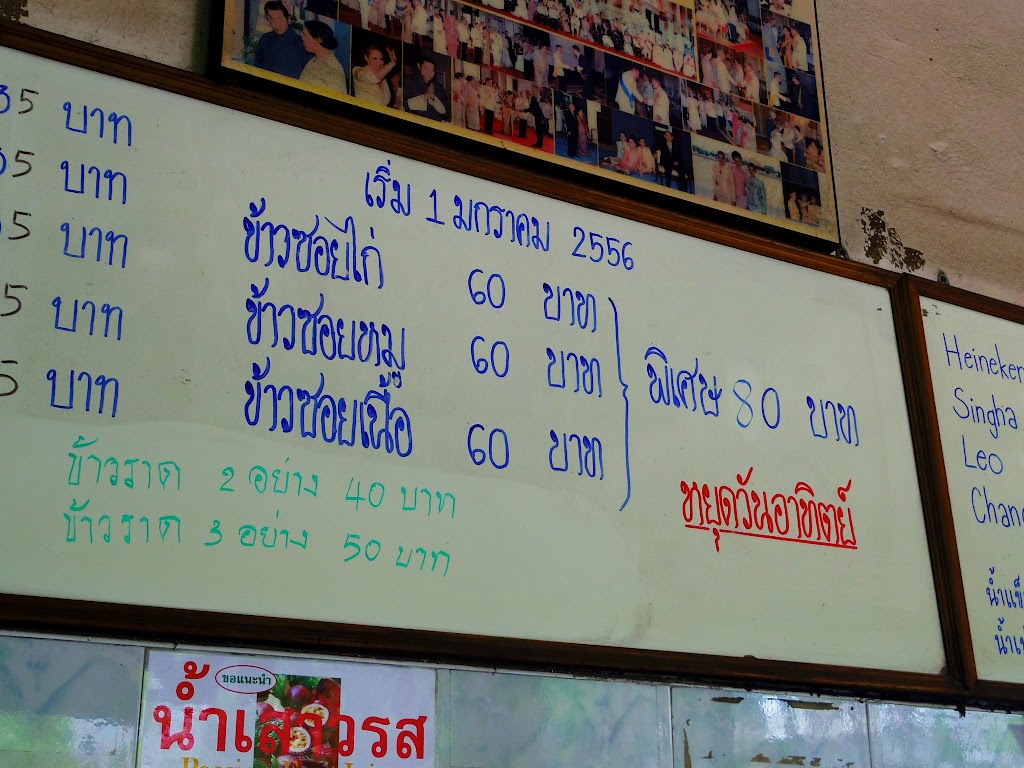 35 บาท
35 บาท
35 บาท
5 บาท
5 บาท
เริ่ม 1 มกราคม 2556
ข้าวซอยไก่ 60 บาท
ข้าวซอยหมู 60 บาท
ข้าวซอยเนื้อ 60 บาท
พิเศษ 80 บาท
หยุดวันอาทิตย์
ข้าวราด 2 อย่าง 40 บาท
ข้าวราด 3 อย่าง 50 บาท
Heineken
Singha
Leo
Chang
ขอแนะนำ
น้ำเสาวรส